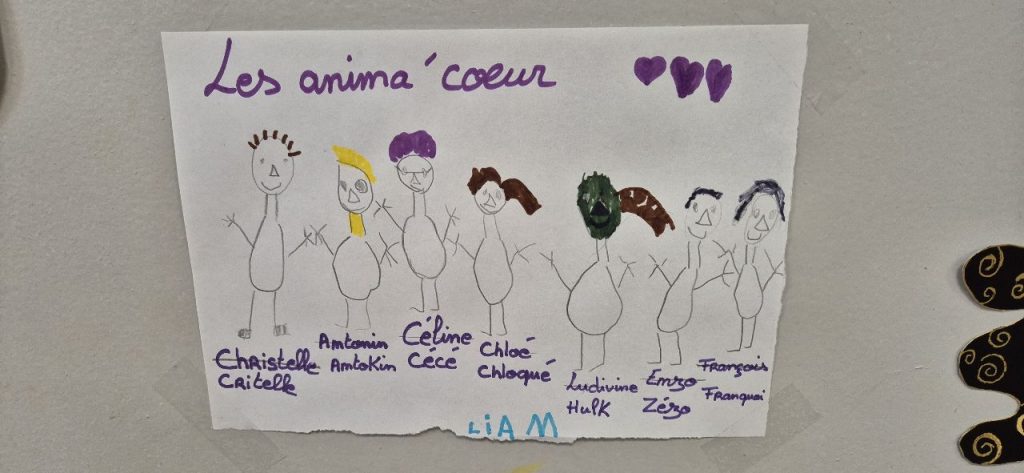 Les anima'coeur
Christelle
Critelle
Antonin
AntoKin
Céline
Cécé
Chloé
Chloqué
Ludivine
Hulk
Enzo
Zézo
François
Franquoi
LiAM